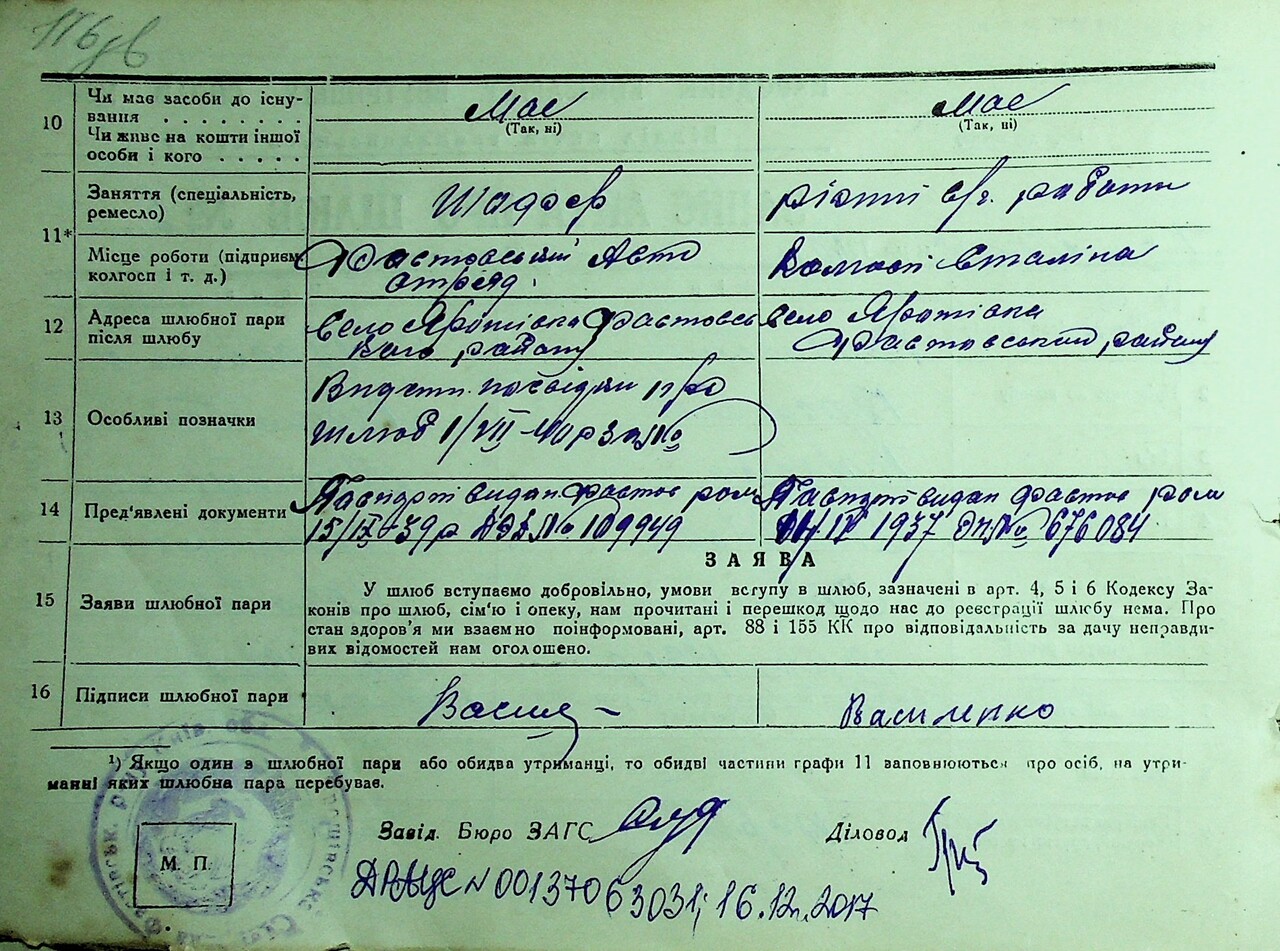 10
Чи має засоби до існу-
вання . . . . . . . .
Має
(Так, ні)
Має
(Так, ні)
Чи живе на кошти іншої
особи і кого . . . . .
11*
Заняття (спеціальність,
ремесло)
Шофер
різні с/г. работи
Місце роботи (підприєм
колгосп і т. д.)
Фастовський Авто
отряд.
Колгосп Сталіна
12
Адреса шлюбної пари
після шлюбу
Село Яротівка Фастовсь
кого району
село Яротівка
Фастовського району
13
Особливі позначки
Видати посвідки про
шлюб 1/VII-40 р за №
14
Пред'явлені документи
Паспорт видан Фастов
15/IX-39р № 109949
Паспорт видан Фастов
IV 1937 № 676084
ЗАЯВА
15
Заяви шлюбної пари
У шлюб вступаємо добровільно, умови вступу в шлюб, зазначені в арт. 4, 5 і 6 Кодексу За-
конів про шлюб, сім'ю і опеку, нам прочитані і перешкод щодо нас до реєстрації шлюбу нема. Про
стан здоров'я ми взаємно поінформовані, арт. 88 і 155 КК про відповідальність за дачу неправди-
вих відомостей нам оголошено.
16
Підписи шлюбної пари
Василенко
¹) Якщо один з шлюбної пари або обидва утриманці, то обидві частини графи 11 заповнюються про осіб, на утри-
манні яких шлюбна пара перебуває.
Завід. Бюро ЗАГС
Діловод
М. П.
ДРАЦС N 00137063031; 16.12.2017